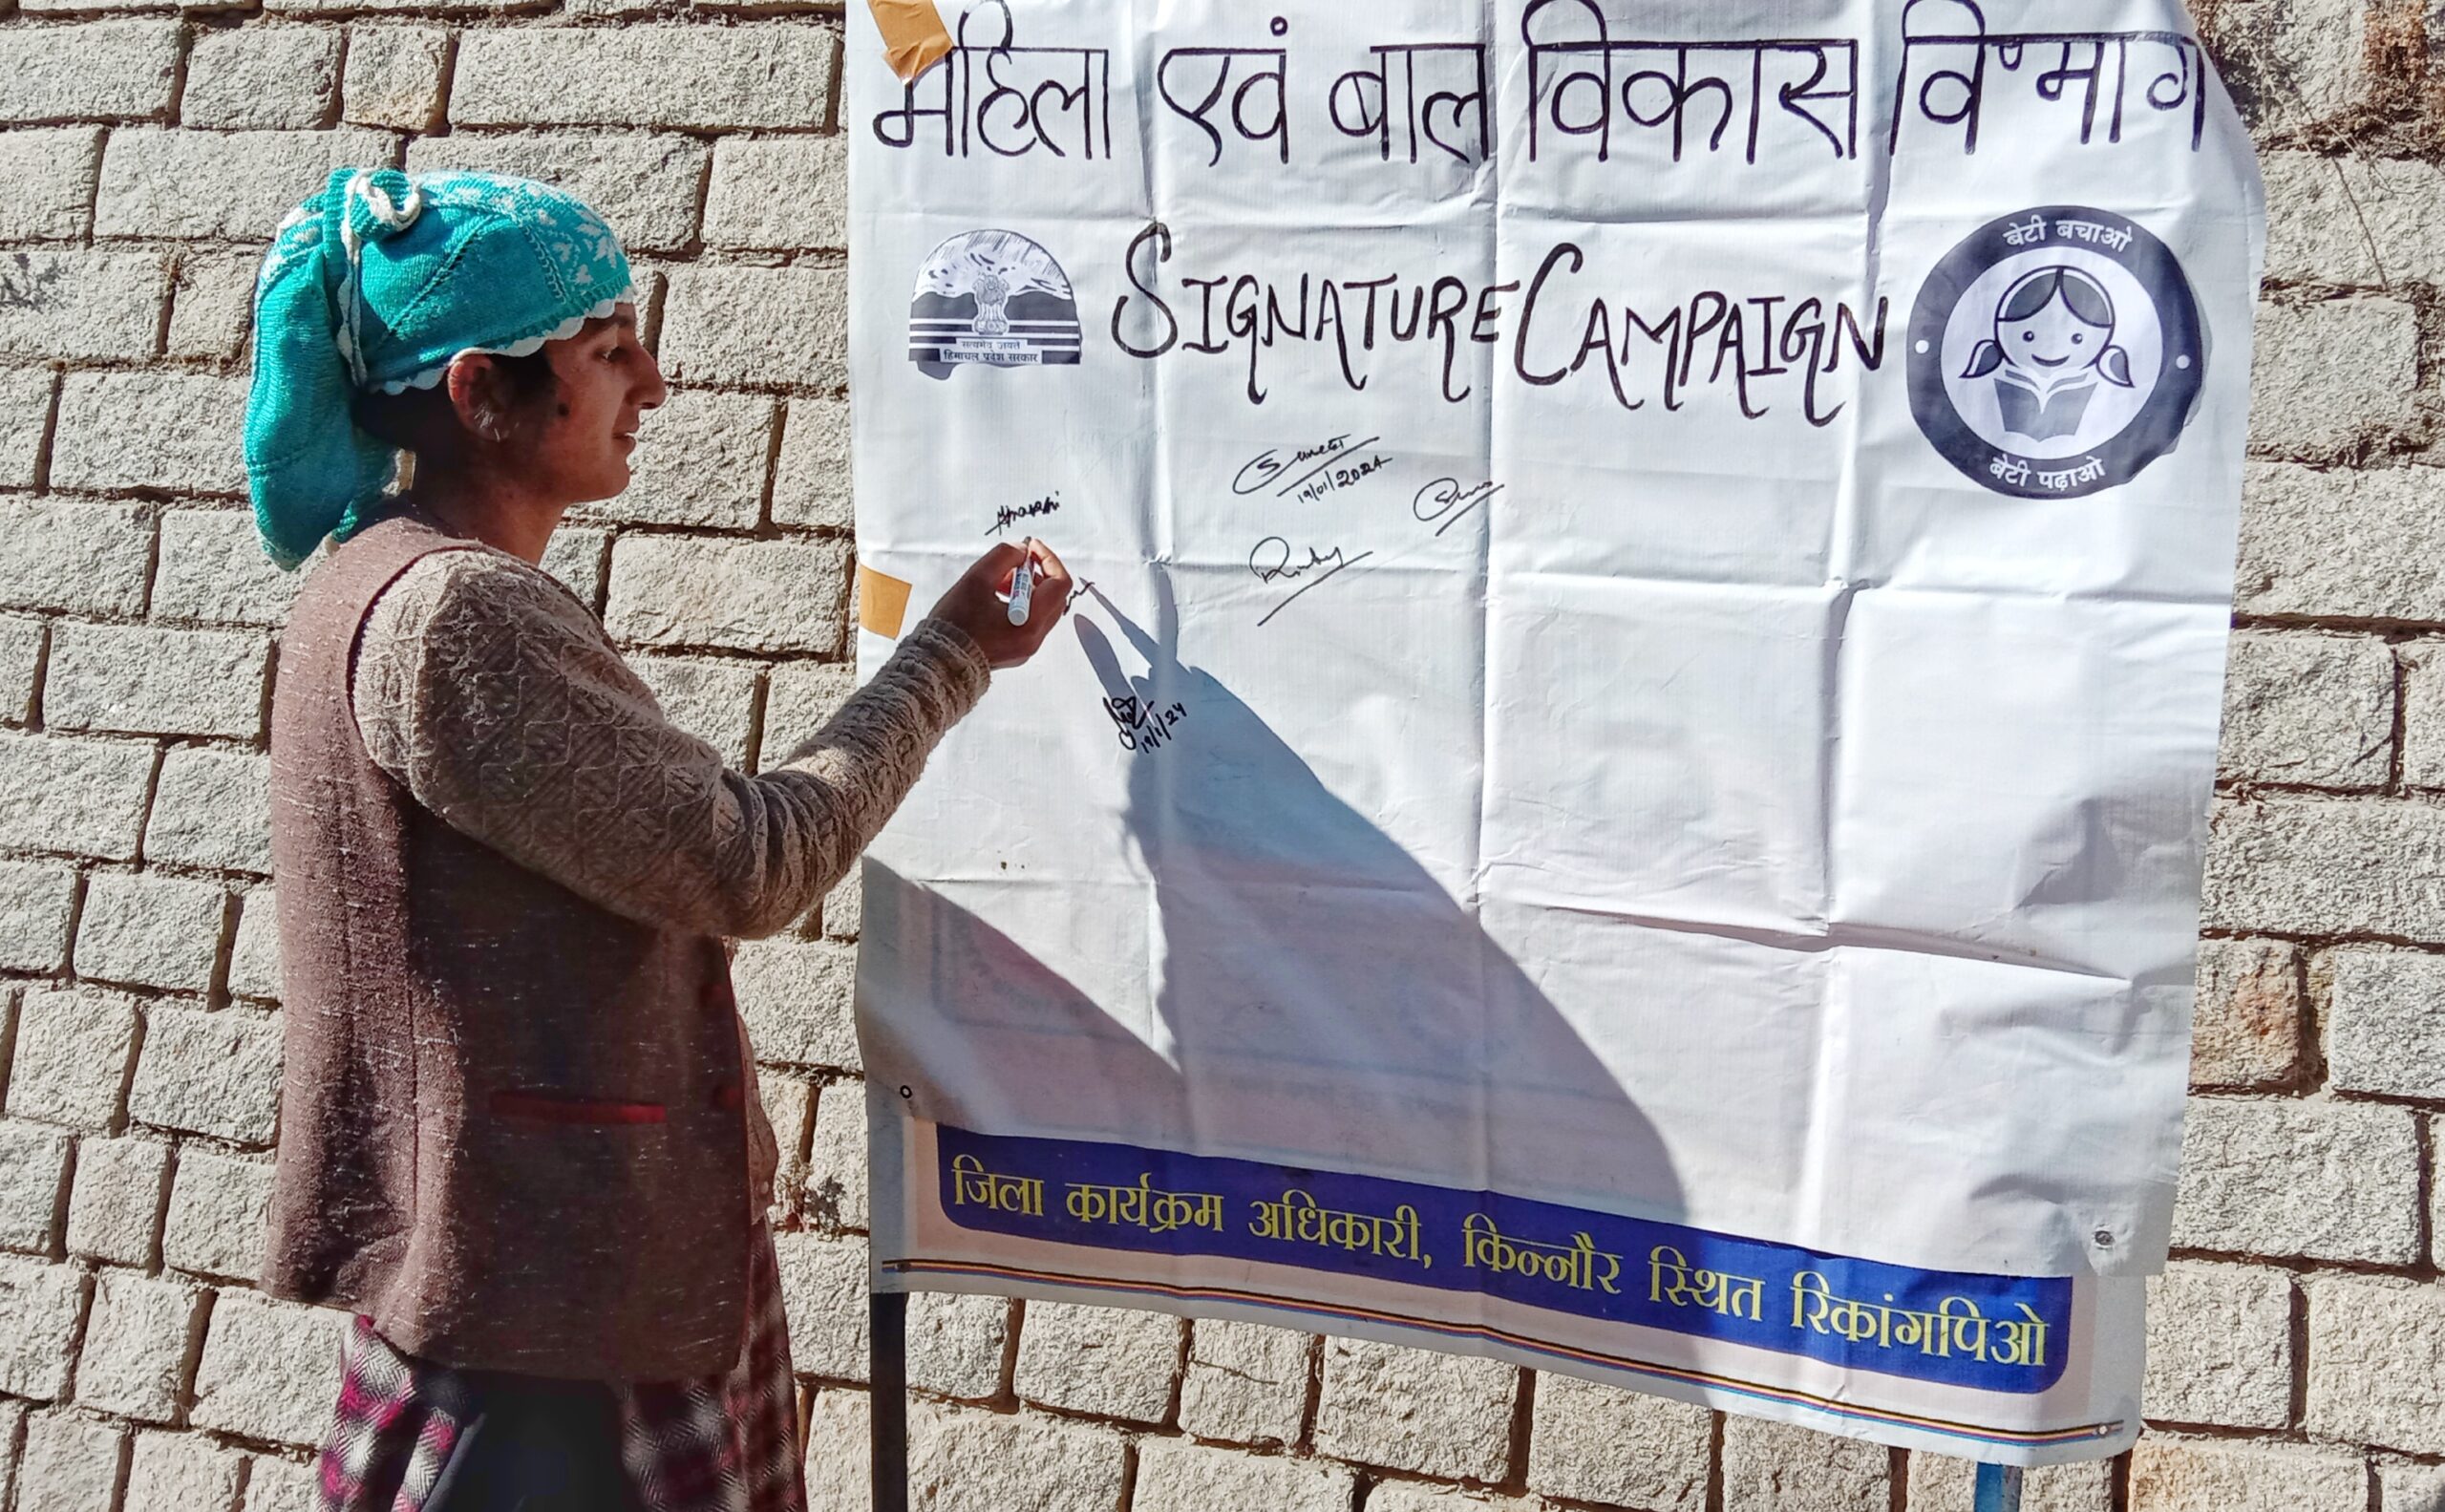 महिला एवं बाल विकास विभाग
SIGNATURE CAMPAIGN
सत्यमेव जयते
हिमाचल प्रदेश सरकार
बेटी बचाओ
बेटी पढ़ाओ
19/01/2024
19/1/24
जिला कार्यक्रम अधिकारी, किन्नौर स्थित रिकांगपिओ